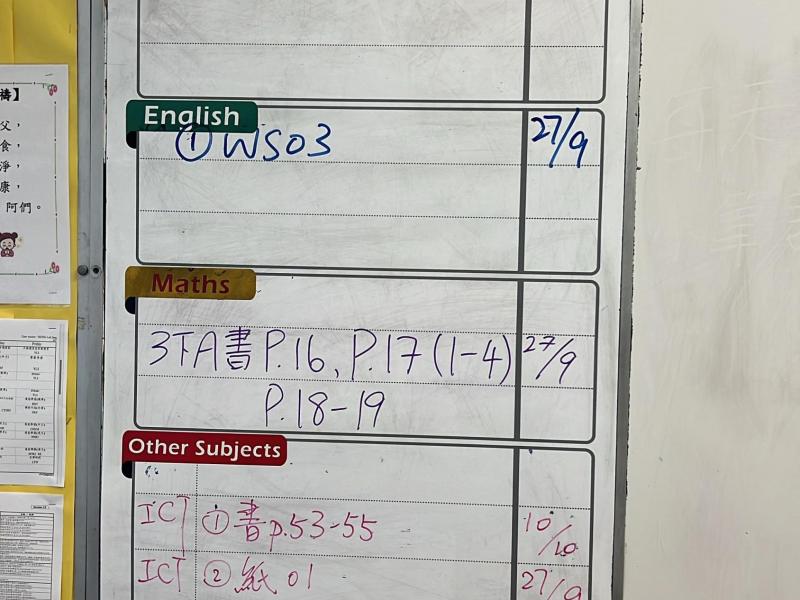 禱】
父，
食，
淨，
康，
阿們。
English
① WS03 27/9
Maths
3下A書 P.16、P.17(1-4) 27/9
P.18-19
Other Subjects
ICT ① 書p.53-55 10/10
ICT ② 紙01 27/9